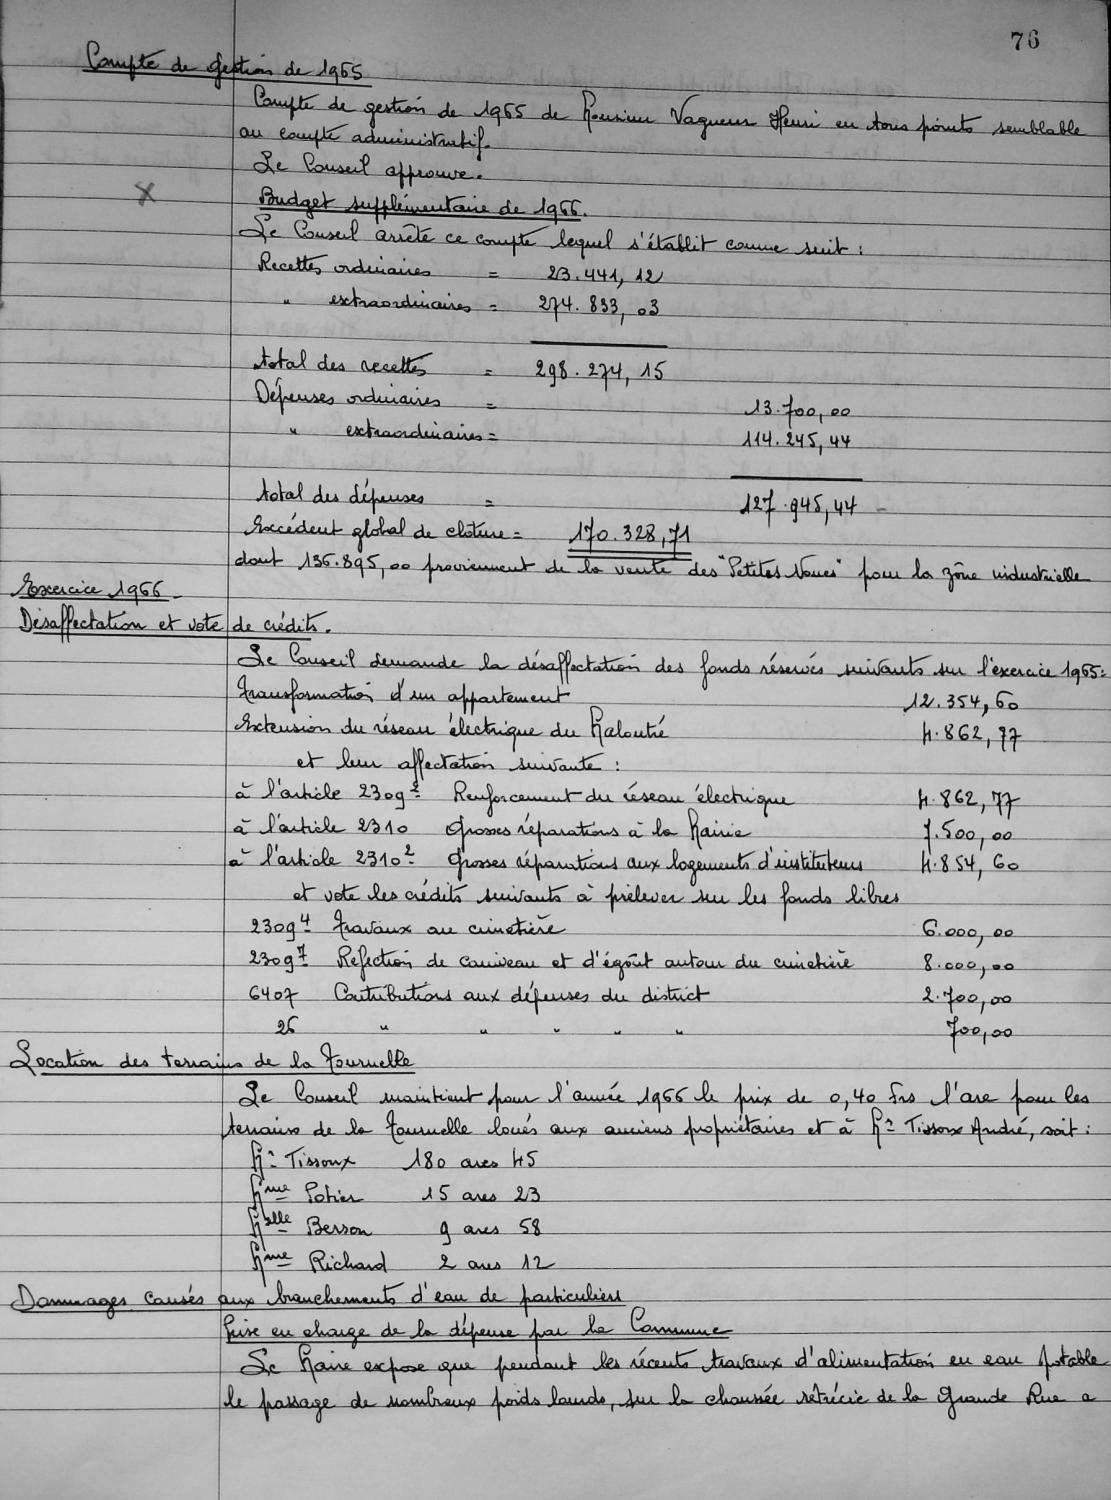 76
Compte de gestion de 1965
Compte de gestion de 1965 de Monsieur Vaqueur Henri en tous points semblable
au compte administratif.
Le Conseil approuve.
X
Budget supplémentaire de 1966.
Le Conseil arrête ce compte lequel s'établit comme suit :
Recettes ordinaires = 23.441,12
" extraordinaires = 274.833,03
total des recettes = 298.274,15
Dépenses ordinaires = 13.700,00
" extraordinaires = 114.245,44
total des dépenses = 127.945,44
Excédent global de clôture = 170.328,71
dont 136.895,00 proviennent de la vente des "Petites Noues" pour la zône industrielle
Exercice 1966
Désaffectation et vote de crédits.
Le Conseil demande la désaffectation des fonds réservés suivants sur l'exercice 1965:
Transformation d'un appartement 12.354,60
Extension du réseau électrique du Maloutré 4.862,77
et leur affectation suivante :
à l'article 2309² Renforcement du réseau électrique 4.862,77
à l'article 2310 Grosses réparations à la Mairie 7.500,00
à l'article 2310² Grosses réparations aux logements d'instituteurs 4.854,60
et vote les crédits suivants à prélever sur les fonds libres
2309⁴ Travaux au cimetière 6.000,00
2309⁷ Réfection de caniveau et d'égoût autour du cimetière 8.000,00
6407 Contributions aux dépenses du district 2.700,00
26 " " " " " 700,00
Location des terrains de la Tournelle
Le Conseil maintient pour l'année 1966 le prix de 0,40 frs l'are pour les
terrains de la Tournelle loués aux anciens propriétaires et à Mr Tissoux André, soit :
Mr Tissoux 180 ares 45
Mme Potier 15 ares 23
Melle Berson 9 ares 58
Mme Richard 2 ares 12
Dommages causés aux branchements d'eau de particuliers
Prise en charge de la dépense par la Commune
Le Maire expose que pendant les récents travaux d'alimentation en eau potable
le passage de nombreux poids lourds, sur la chaussée rétrécie de la Grande Rue a